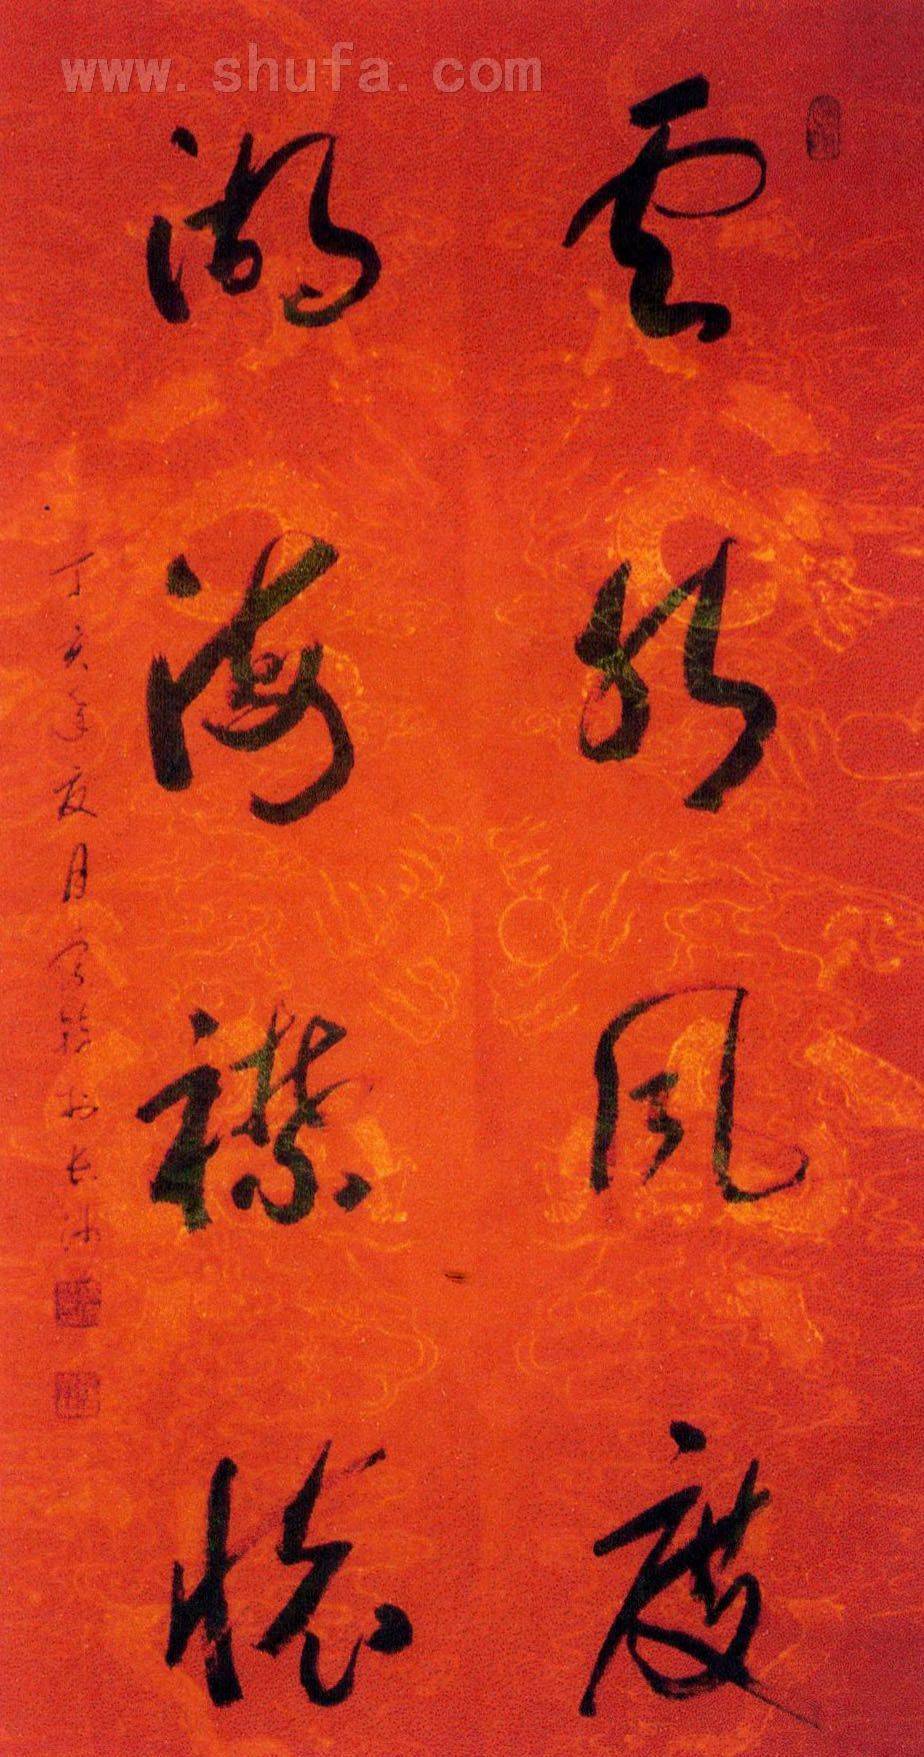 www.shufa.com
云水风度
湖海襟怀
丁亥年夏月
长沙